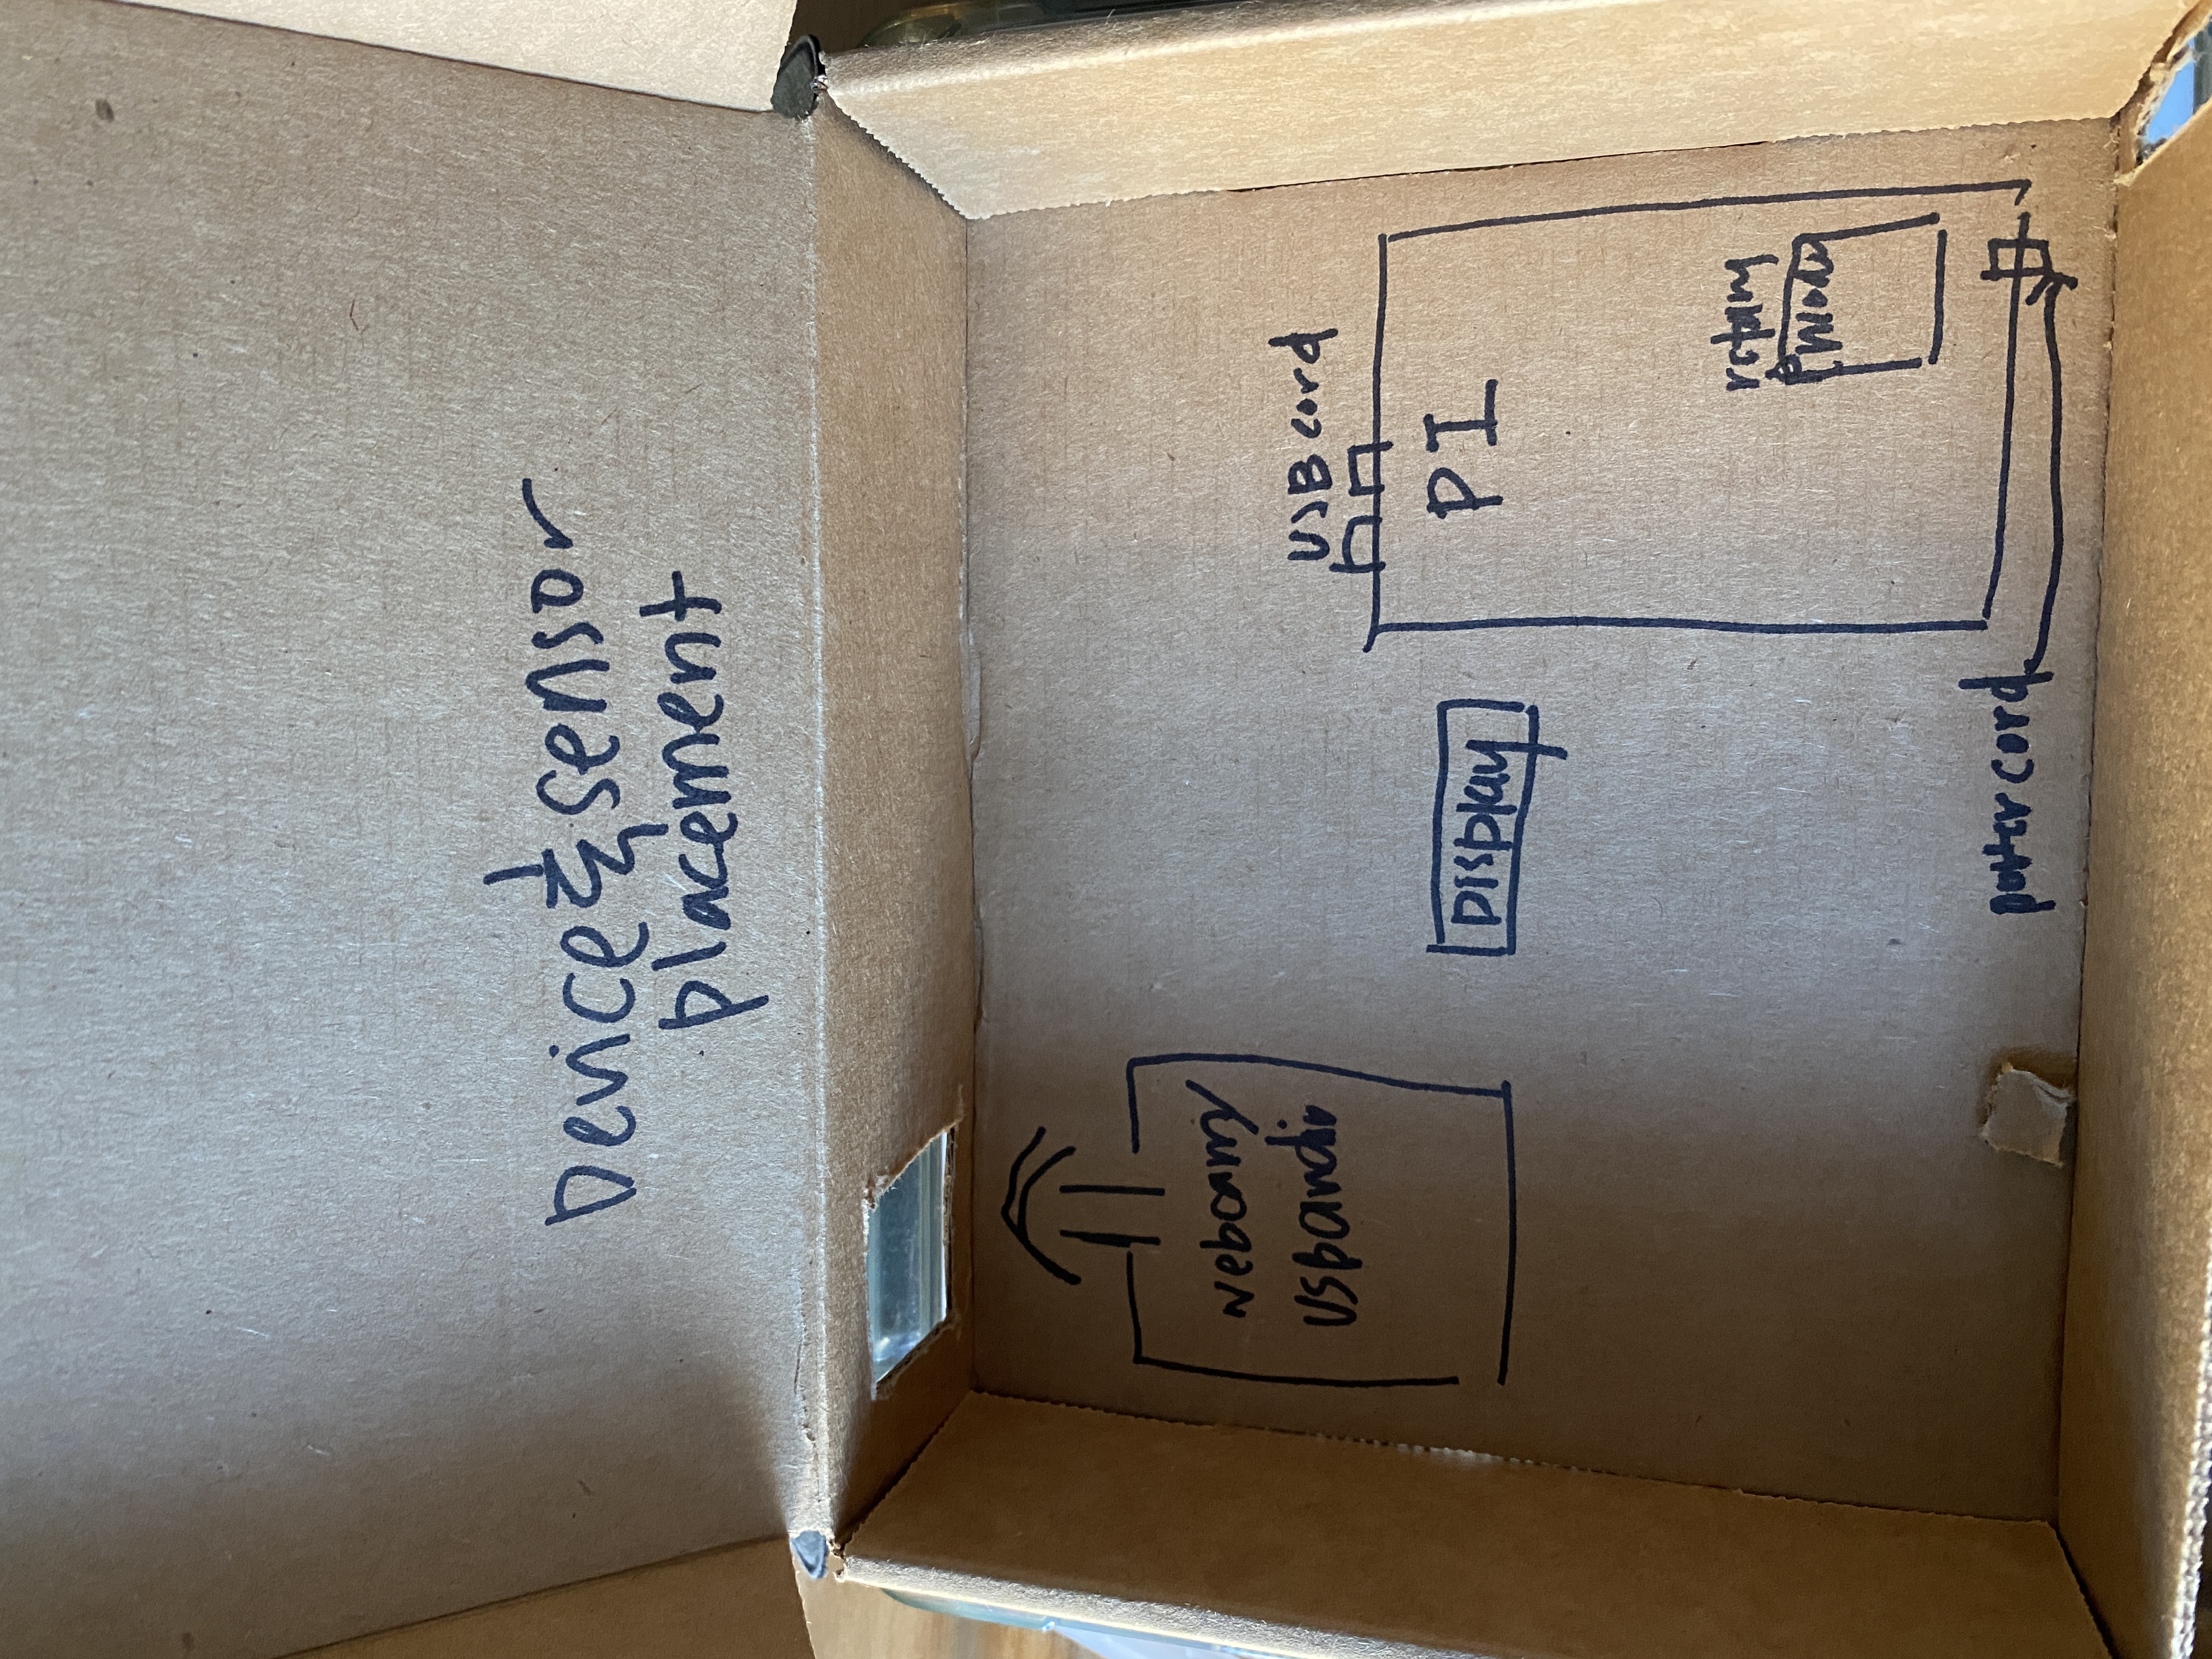 Device & sensor
placement
webcam/
USB audio
USB cord
PI
Display
rotary
encoder
power cord